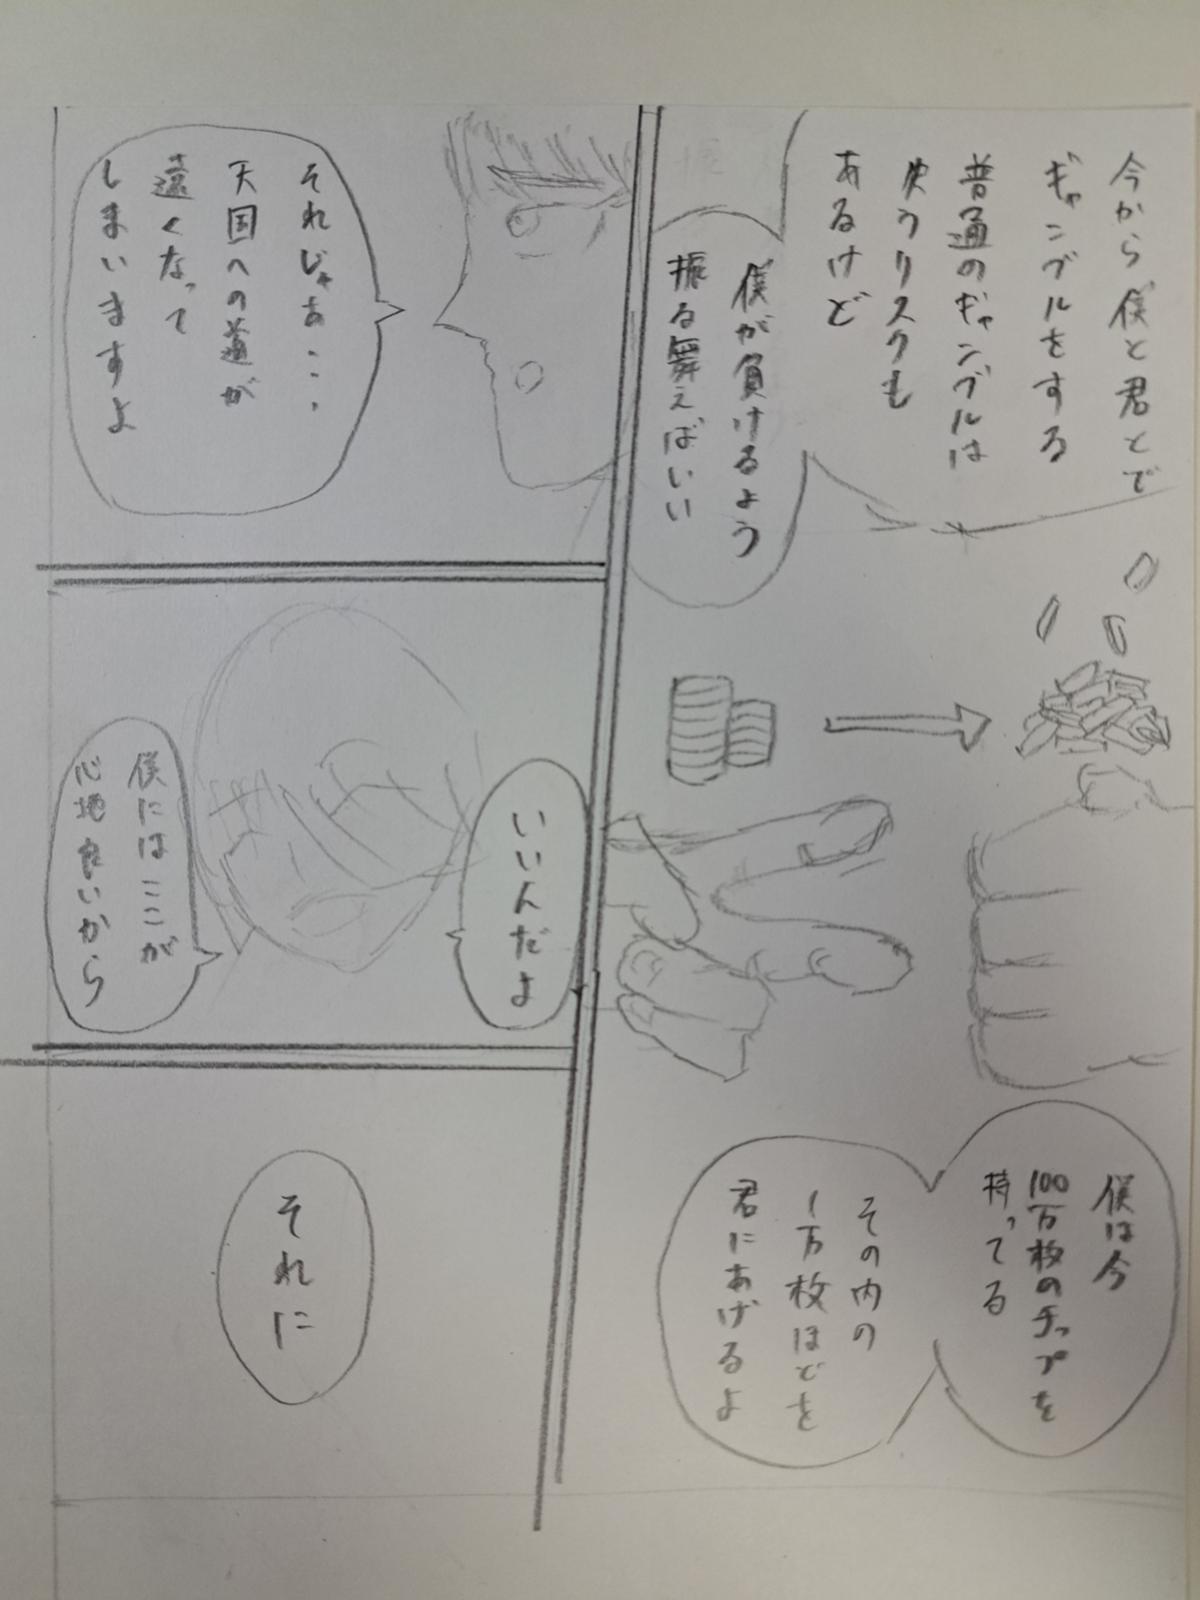 今から僕と君とで
ギャンブルをする
普通のギャンブルは
失うリスクも
あるけど
僕が負けるよう
振る舞えばいい
僕は今
100万枚のチップを
持ってる
その内の
1万枚ほどを
君にあげるよ
それじゃあ...
天国への道が
遠くなって
しまいますよ
いいんだよ
僕にはここが
心地良いから
それに